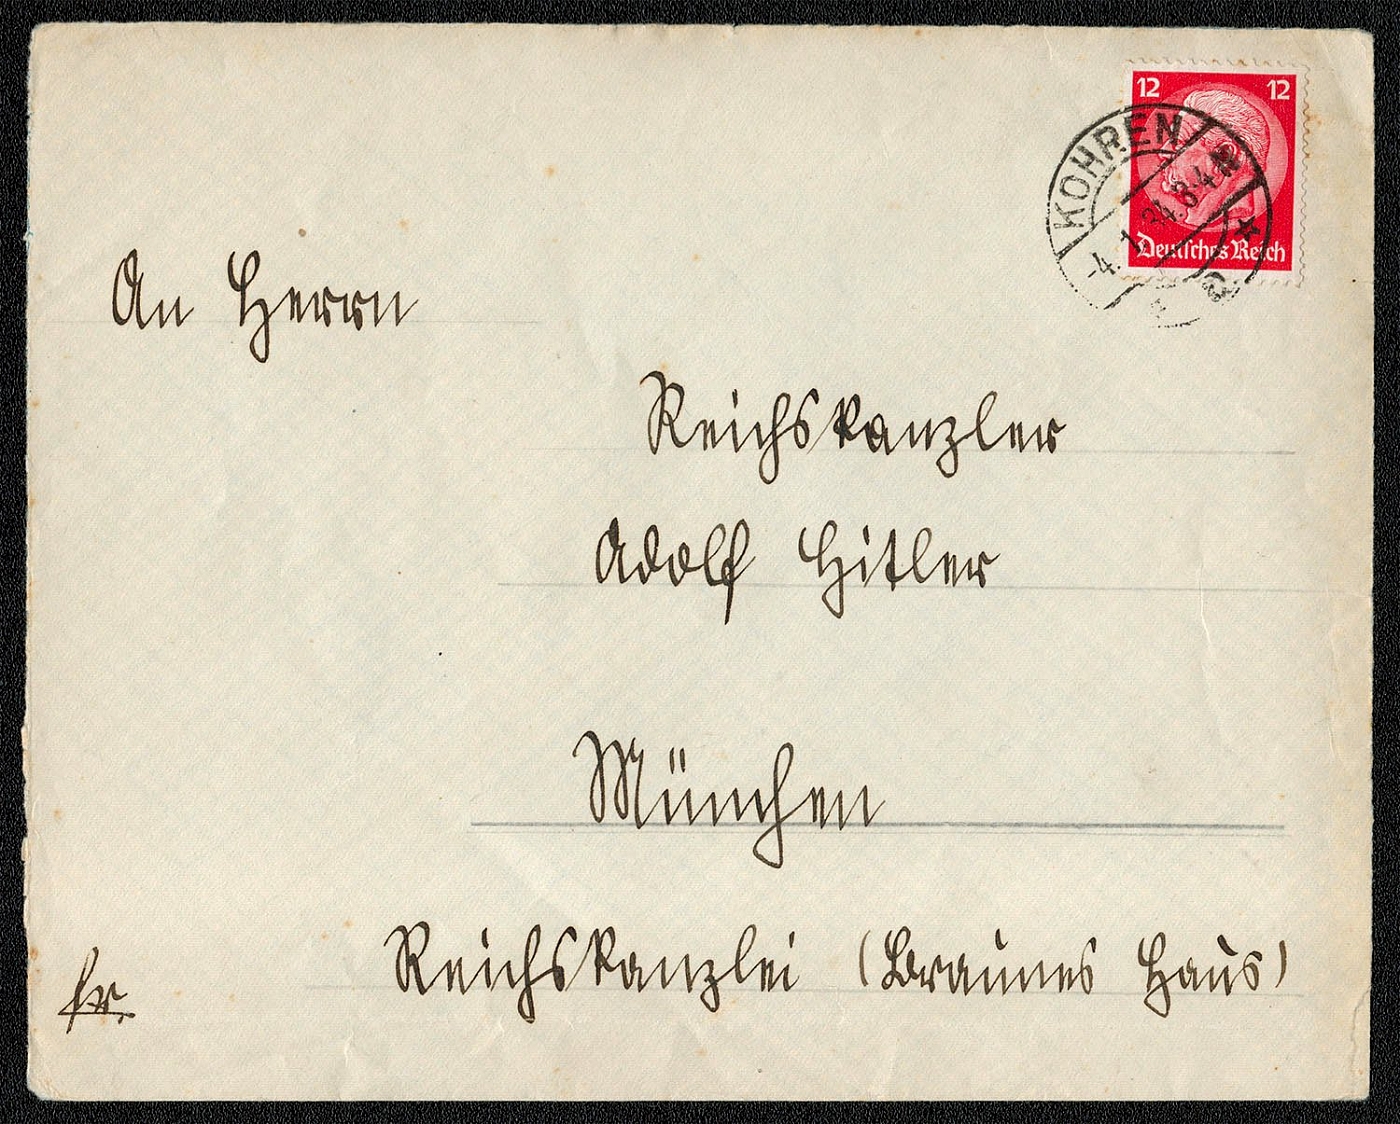 12 12
KOHREN
-4.1.34.8-4 N
Deutsches Reich
An Herrn
Reichskanzler
Adolf Hitler
München
Reichskanzlei (Braunes Haus)
fr.